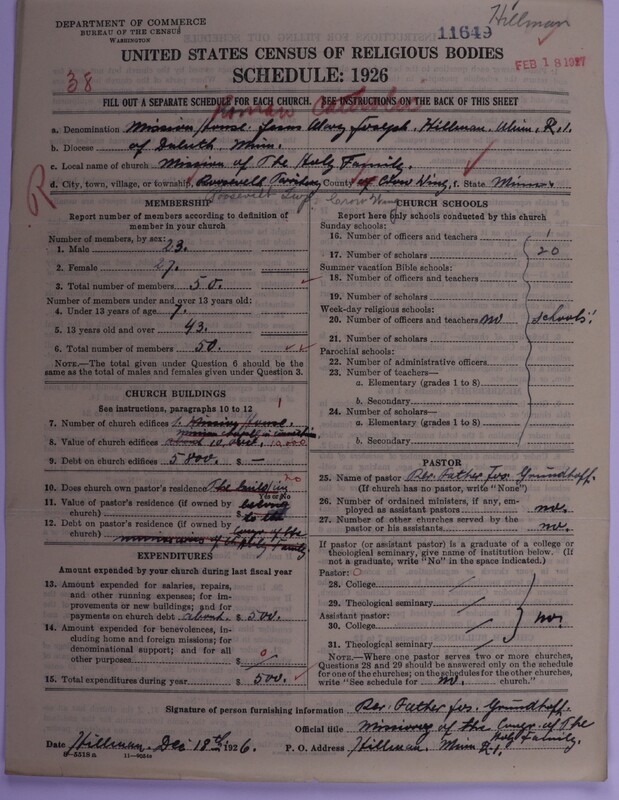 Hillman
DEPARTMENT OF COMMERCE
BUREAU OF THE CENSUS
WASHINGTON
11649
FEB 18 1927
UNITED STATES CENSUS OF RELIGIOUS BODIES
38
SCHEDULE: 1926
FILL OUT A SEPARATE SCHEDULE FOR EACH CHURCH. SEE INSTRUCTIONS ON THE BACK OF THIS SHEET
Roman Catholic
a. Denomination Mission House Jesus Mary Joseph. Hillman, Minn. R.1.
b. Diocese of Duluth Minn.
c. Local name of church Mission of The Holy Family.
d. City, town, village, or township, Roosevelt County of Crow Wing, f. State Minn.
R
Roosevelt Twp. Crow Wing
MEMBERSHIP
Report number of members according to definition of member in your church
Number of members, by sex:
1. Male 23.
2. Female 27.
3. Total number of members 50.
Number of members under and over 13 years old:
4. Under 13 years of age 7.
5. 13 years old and over 43.
6. Total number of members 50.
NOTE.—The total given under Question 6 should be the same as the total of males and females given under Question 3.
CHURCH BUILDINGS
See instructions, paragraphs 10 to 12
7. Number of church edifices 1. Mission House. 1
8. Value of church edifices about 10,000
9. Debt on church edifices 5800. $ —
10. Does church own pastor's residence? The building No
Yes or No
11. Value of pastor's residence (if owned by church) belong
to the
12. Debt on pastor's residence (if owned by church) Congr. of the
missionaries of the Holy Family
EXPENDITURES
Amount expended by your church during last fiscal year
13. Amount expended for salaries, repairs, and other running expenses; for improvements or new buildings; and for payments on church debt about $ 500.
14. Amount expended for benevolences, including home and foreign missions; for denominational support; and for all other purposes $ 0
15. Total expenditures during year $ 500.
CHURCH SCHOOLS
Report here only schools conducted by this church
Sunday schools:
16. Number of officers and teachers 1
17. Number of scholars 20
Summer vacation Bible schools:
18. Number of officers and teachers
19. Number of scholars
Week-day religious schools:
20. Number of officers and teachers no schools!
21. Number of scholars
Parochial schools:
22. Number of administrative officers
23. Number of teachers—
a. Elementary (grades 1 to 8)
b. Secondary
24. Number of scholars—
a. Elementary (grades 1 to 8)
b. Secondary
PASTOR
25. Name of pastor Rev. Father Jos. Grundhoff.
(If church has no pastor, write "None")
26. Number of ordained ministers, if any, employed as assistant pastors no.
27. Number of other churches served by the pastor or his assistants no.
If pastor (or assistant pastor) is a graduate of a college or theological seminary, give name of institution below. (If not a graduate, write "No" in the space indicated.)
Pastor: 0
28. College
29. Theological seminary
Assistant pastor: no.
30. College
31. Theological seminary
NOTE.—Where one pastor serves two or more churches, Questions 28 and 29 should be answered only on the schedule for one of the churches; on the schedules for the other churches, write "See schedule for no. church."
Signature of person furnishing information Rev. Father Jos. Grundhoff
Official title Missionary of the Congr. of The Holy Family.
Date Hillman. Dec 18th, 1926. P. O. Address Hillman. Minn R-1.